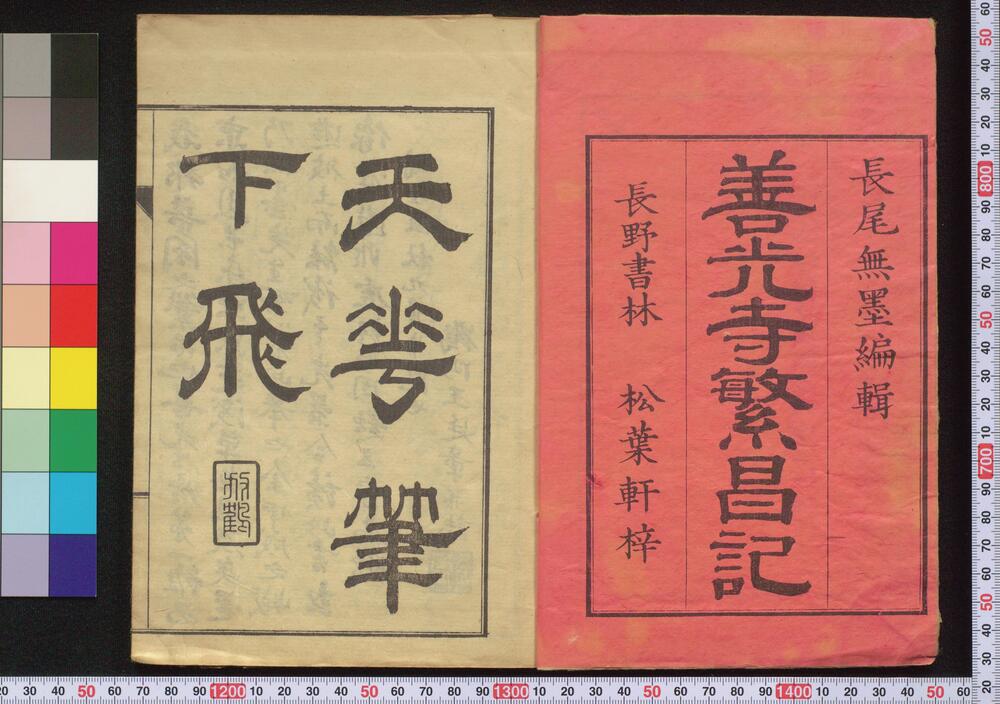 長尾無墨編輯
善光寺繁昌記
長野書林 松葉軒梓
天花筆
下飛